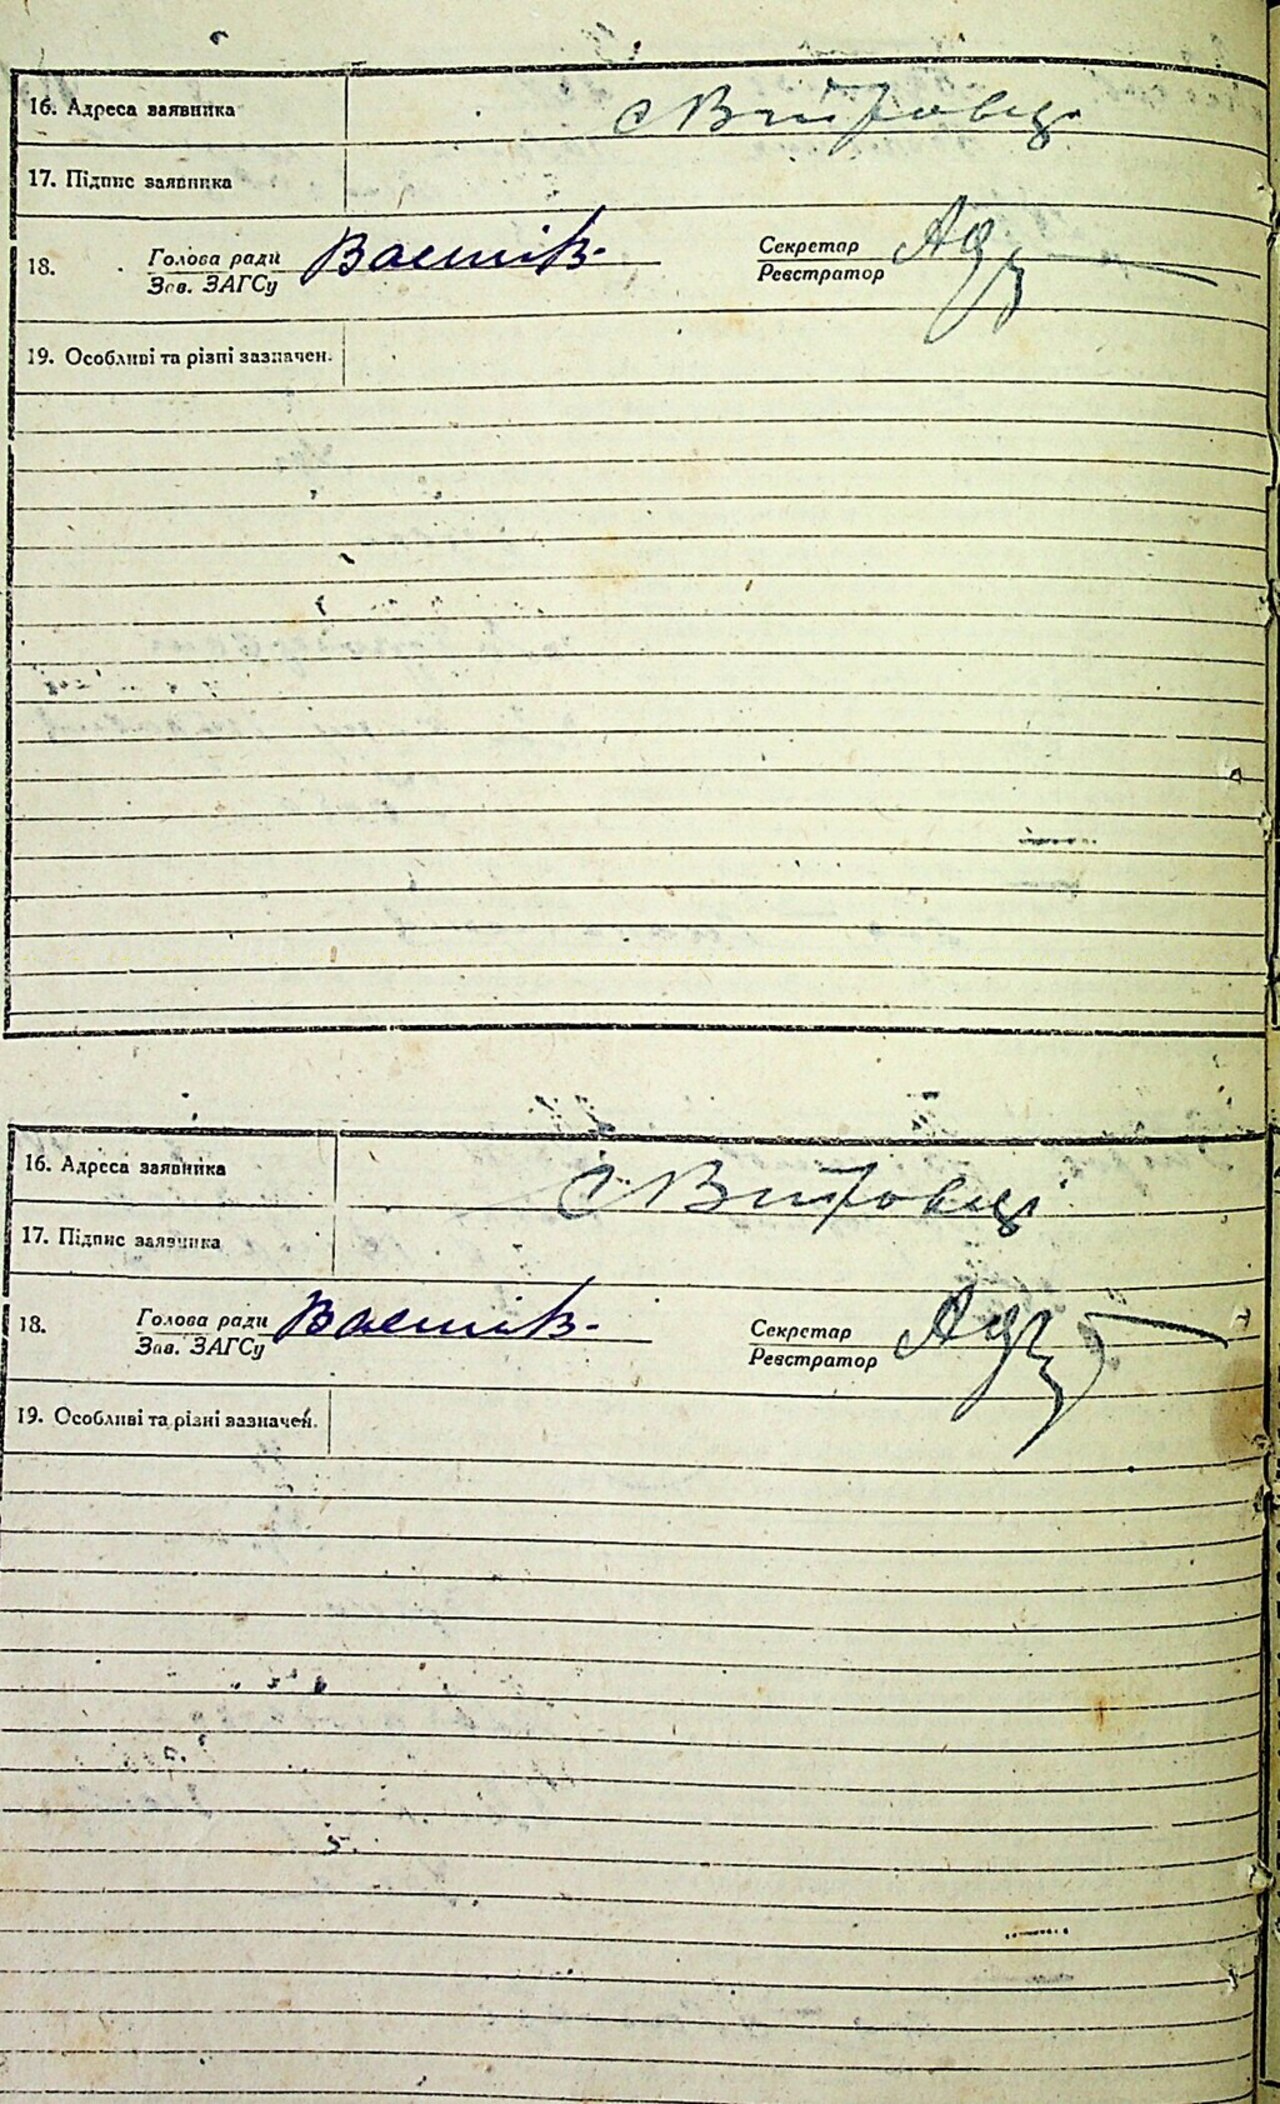 16. Адреса заявника с Витровц
17. Підпис заявника
18. Голова ради Секретар
Зав. ЗАГСу Реєстратор
19. Особливі та різні зазначен.
16. Адреса заявника с Витровц
17. Підпис заявника
18. Голова ради Секретар
Зав. ЗАГСу Реєстратор
19. Особливі та різні зазначен.